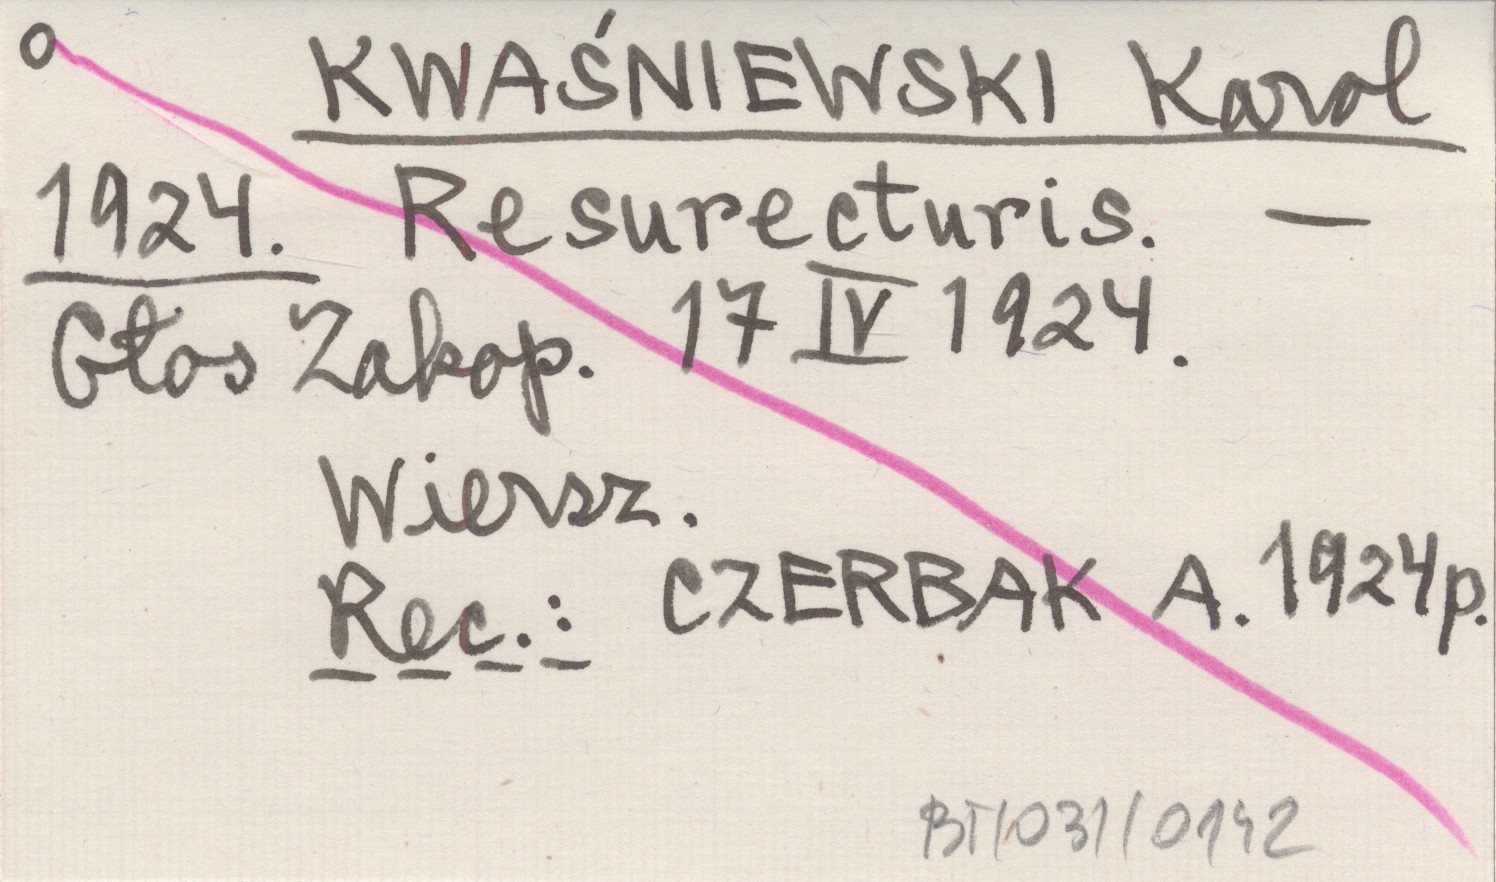 o KWAŚNIEWSKI Karol
1924. Resurecturis. —
Głos Zakop. 17 IV 1924.
Wiersz.
Rec.: CZERBAK A. 1924p.
BT/031/0142